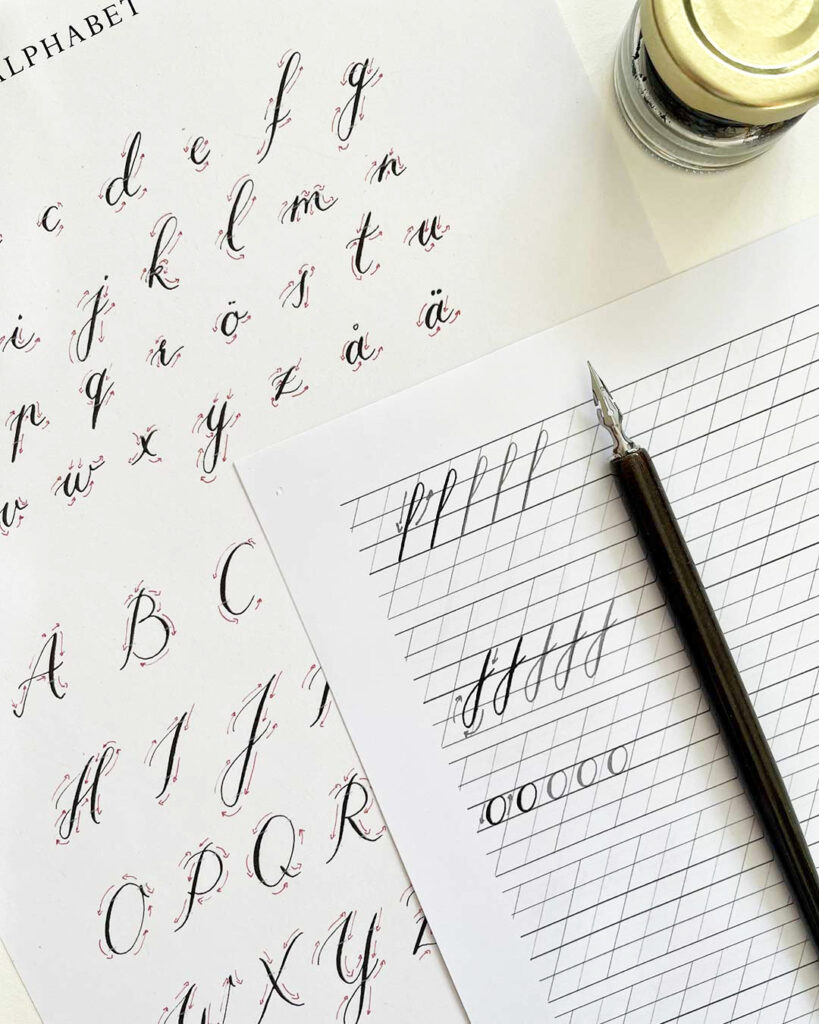 ALPHABET
c d e f g
i j k l m n
p q r ö s t u
v w x y z å ä
A B C
H I J
O P Q R
W X Y
o o o o o